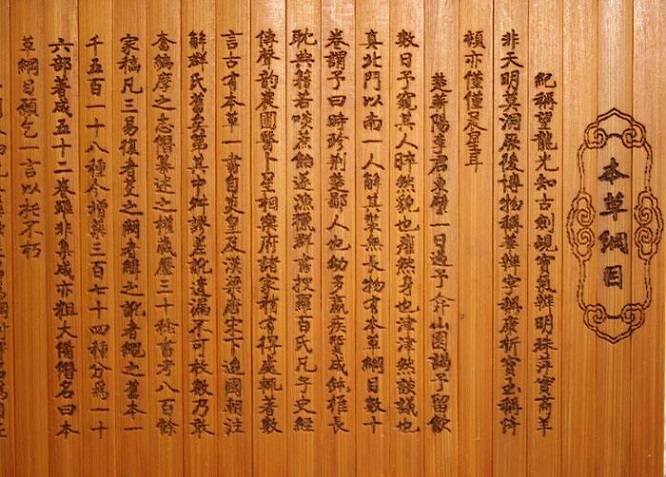 本草綱目
紀稱望龍光知古劍覘寶氣辨明珠萍實商羊
非天明莫洞厥後博物稱華辨字稱康析寶玉稱倚
頓亦僅僅晨星耳
楚蘄陽李君東璧一日過予弇山園謁予留飲
數日予窺其人睟然貌也癯然身也津津然談議也
真北門以南一人解其裝無長物有本草綱目數十
卷謂予曰時珍荊楚鄙人也幼多羸疾質成鈍椎長
耽典籍若啖蔗飴遂漁獵群書搜羅百氏凡子史經
傳聲韵農圃醫卜星相樂府諸家稍有得處輒著數
言古有本草一書自炎皇及漢梁唐宋下迨國朝註
解群氏舊矣第其中舛謬差訛遺漏不可枚數乃敢
奮編摩之志僭纂述之權歲歷三十稔書考八百餘
家稿凡三易復者芟之闕者緝之訛者繩之舊本一
千五百一十八種今增藥三百七十四種分為一十
六部著成五十二卷雖非集成亦粗大備僭名曰本
草綱目願乞一言以托不朽